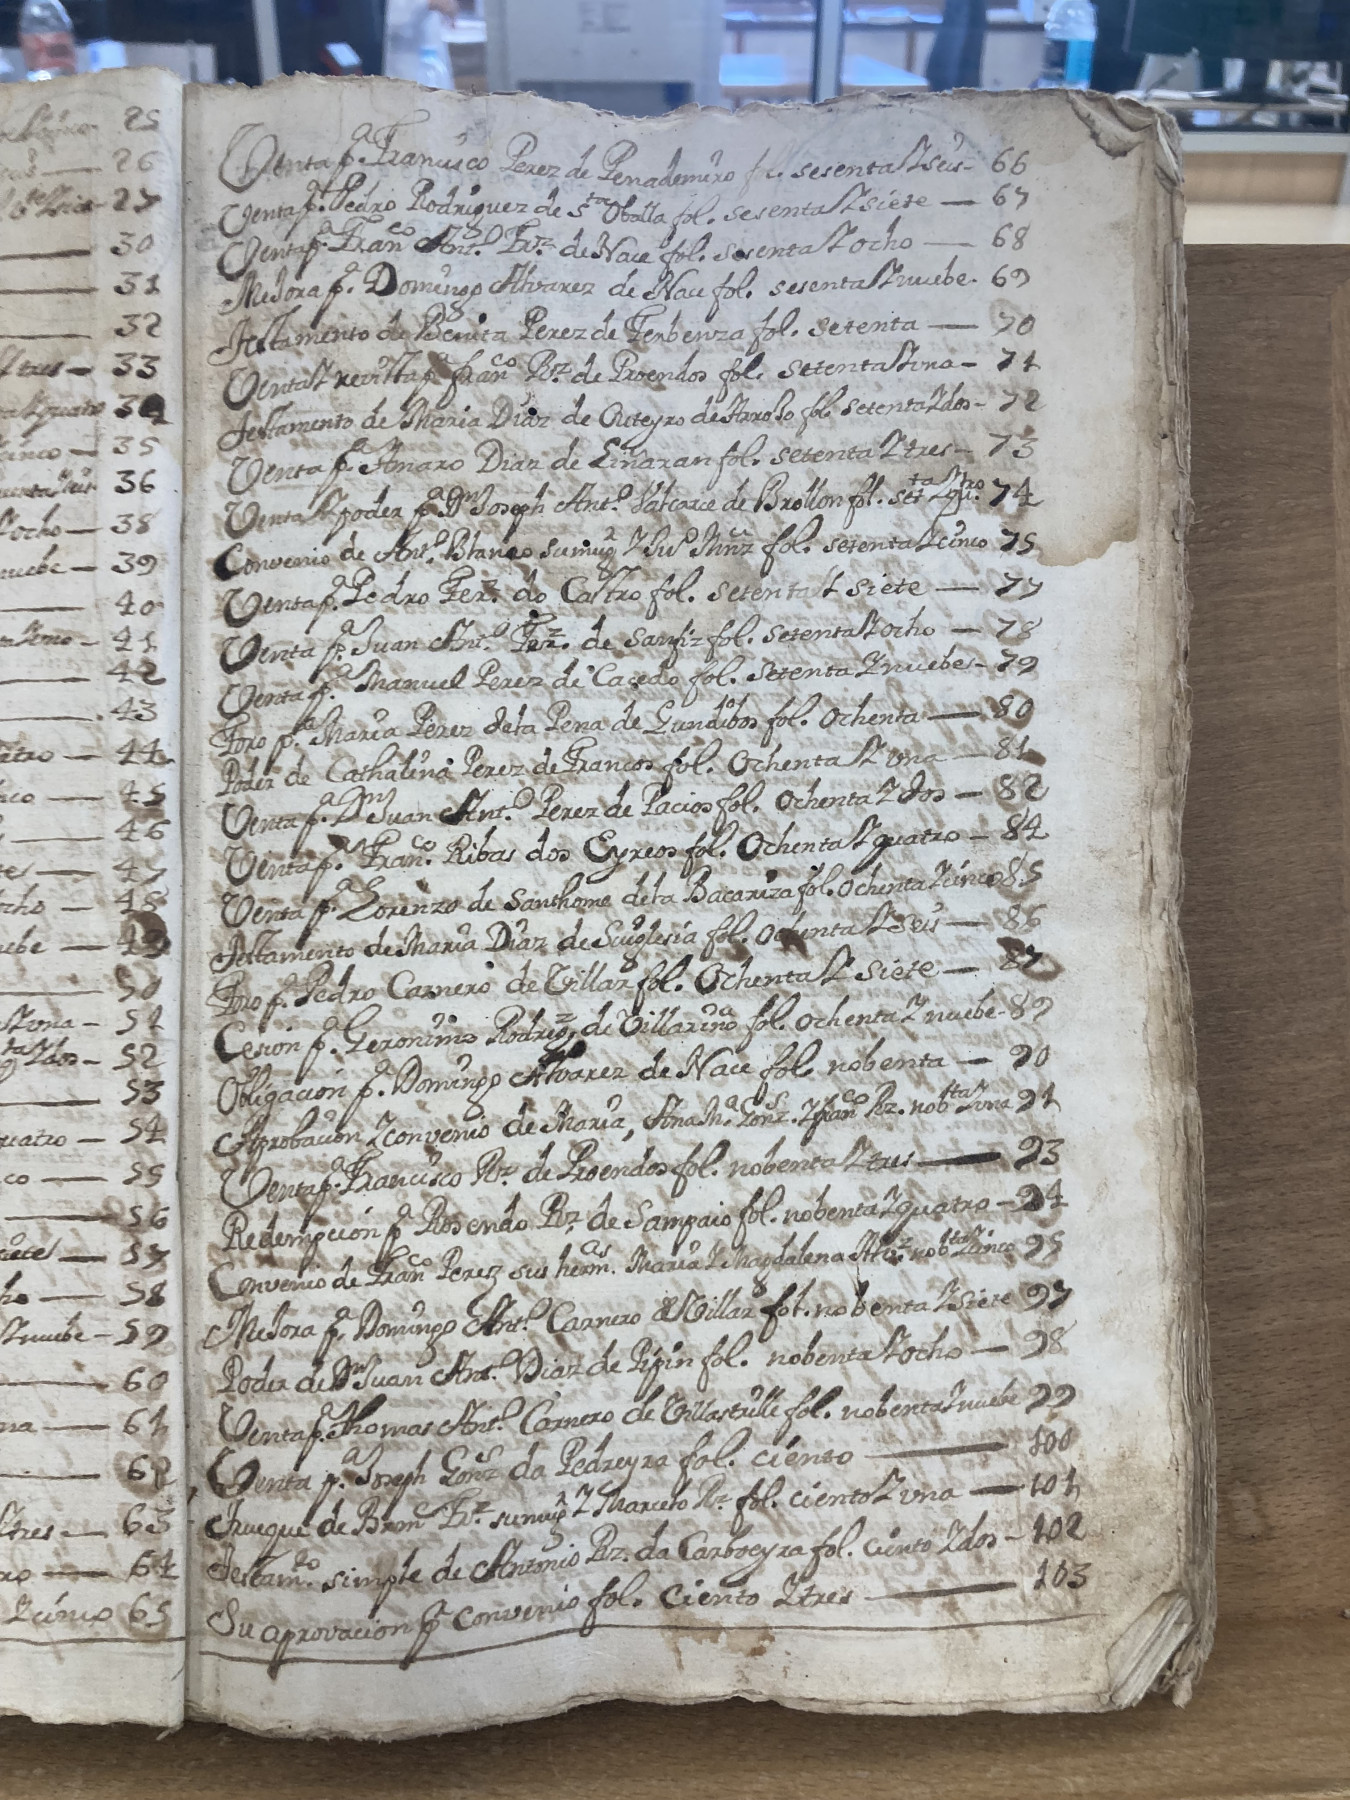 25
26
27
30
31
32
tres — 33
quatro 34
cinco — 35
36
ocho — 38
nuebe — 39
40
41
42
43
atro — 44
nco — 45
46
tes — 47
ocho — 48
uebe — 49
50
una — 51
ta Y dos — 52
53
quatro — 54
co — 55
56
siete — 57
ho — 58
Y nuebe — 59
60
na — 61
62
tres — 63
ro — 64
Y cinco 65
Venta pª. Francisco Perez de Penademuro fol. sesenta Y seis — 66
Venta pª. Pedro Rodriguez de Sta Oballa fol. sesenta Y siete — 67
Venta pª. Franco Anto. Frz. de Nace fol. sesenta Y ocho — 68
Mejora pª. Domingo Alvarez de Nace fol. sesenta Y nuebe — 69
Testamento de Benita Perez de Ferbenza fol. setenta — 70
Venta Y revista pª. Franco Rz. de Proendos fol. setenta Y una — 71
Testamento de Maria Diaz de Outeyro de Arrojo fol. setenta Y dos — 72
Venta pª. Amaro Diaz de Liñaran fol. setenta Y tres — 73
Venta Y poder pª. Dn Joseph Anto. Valcarce de Brollon fol. setta Y qutro 74
Convenio de Anto. Blanco su mugr Y Juo Nuñz fol. setenta Y cinco 75
Venta pª. Pedro Ferz. do Castro fol. setenta Y siete — 77
Venta pª. Juan Anto. Frz. de Sanfiz fol. setenta Y ocho — 78
Venta pª. Manuel Perez de Cacedo fol. setenta Y nuebe — 79
Foro pª. Maria Perez de la Pena de Gundibos fol. ochenta — 80
Poder de Cathalina Perez de Francos fol. ochenta Y una — 81
Venta pª. Dn Juan Anto. Perez de Pacios fol. ochenta Y dos — 82
Venta pª. Franco. Ribas dos Eyreos fol. ochenta Y quatro — 84
Venta pª. Lorenzo de Santhome de la Bacariza fol. ochenta Y cinco 85
Testamento de Maria Diaz de Suiglesia fol. ochenta Y seis — 86
Foro pª. Pedro Carnero de Villar fol. ochenta Y siete — 87
Cesion pª. Geronimo Rodrigz de Villarino fol. ochenta Y nuebe — 89
Obligacion pª. Domingo Alvarez de Nace fol. nobenta — 90
Aprobacion Y convenio de Maria, Ana Mª Gonz. Y Franco Rz. nobta Y una 91
Venta pª. Francisco Rz. de Proendos fol. nobenta Y tres — 93
Redempcion pª Rosendo Rz. de Sampaio fol. nobenta Y quatro — 94
Convenio de Franco Perez sus hermas. Maria Y Magdalena Alvz nobta Y cinco 95
Mejora pª. Domingo Anto. Carnero de Villar fol. nobenta Y siete 97
Poder de Dn Juan Anto. Diaz de Pipin fol. nobenta Y ocho — 98
Venta pª. Thomas Anto. Carnero de Villastrille fol. nobenta Y nuebe 99
Venta pª. Joseph Gonz da Pedreyra fol. ciento — 100
Trueque de Brme Frz. su mugr Y Marcelo Rz. fol. ciento Y una — 101
Testamto. simple de Antonio Rz. da Carboeyra fol. ciento Y dos — 102
Su aprovacion pr convenio fol. ciento Y tres — 103